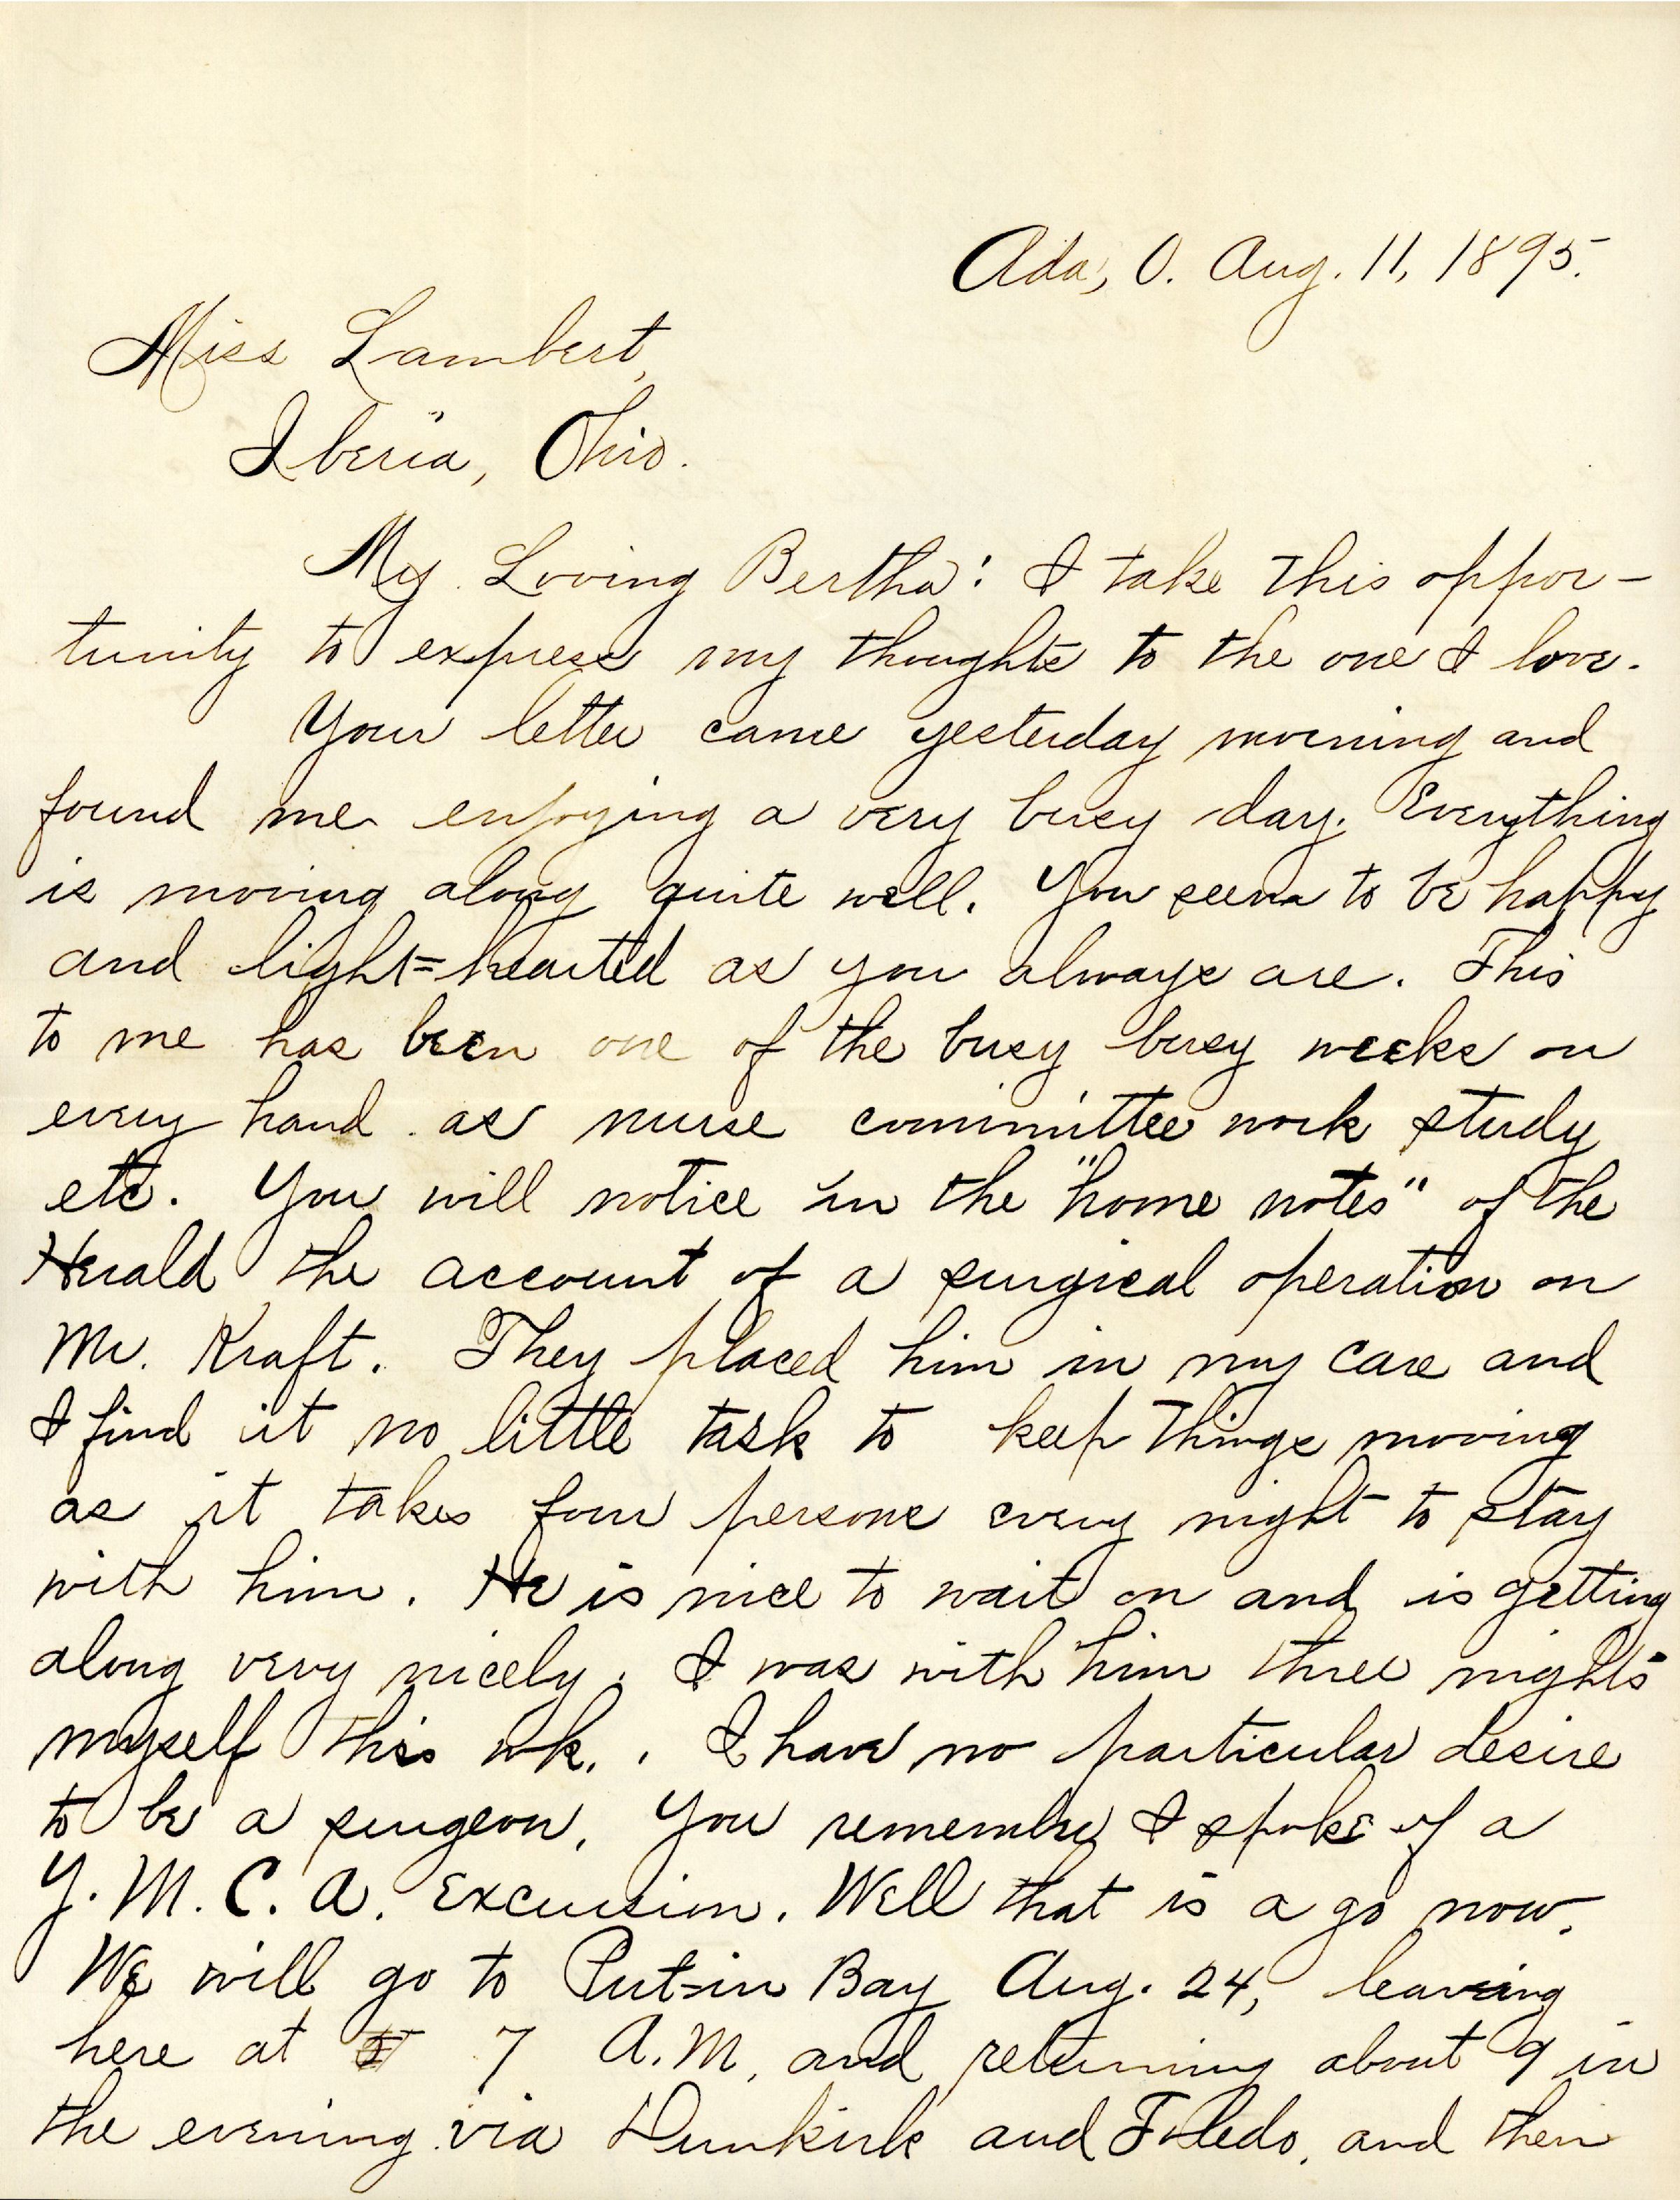 Ada, O. Aug. 11, 1895.
Miss Lambert,
Iberia, Ohio.
My Loving Bertha: I take this oppor-
tunity to express my thoughts to the one I love.
Your letter came yesterday morning and
found me enjoying a very busy day. Everything
is moving along quite well. You seem to be happy
and light=hearted as you always are. This
to me has been one of the busy busy weeks on
every hand as nurse committee work study
etc. You will notice in the "home notes" of the
Herald the account of a surgical operation on
Mr. Kraft. They placed him in my care and
I find it no little task to keep things moving
as it takes four persons every night to stay
with him. He is nice to wait on and is getting
along very nicely. I was with him three nights
myself this wk. . I have no particular desire
to be a surgeon. You remember I spoke of a
Y. M. C. A. Excursion. Well that is a go now.
We will go to Put-in Bay Aug. 24, leaving
here at 7 A.M. and returning about 9 in
the evening via Dunkirk and Toledo, and then